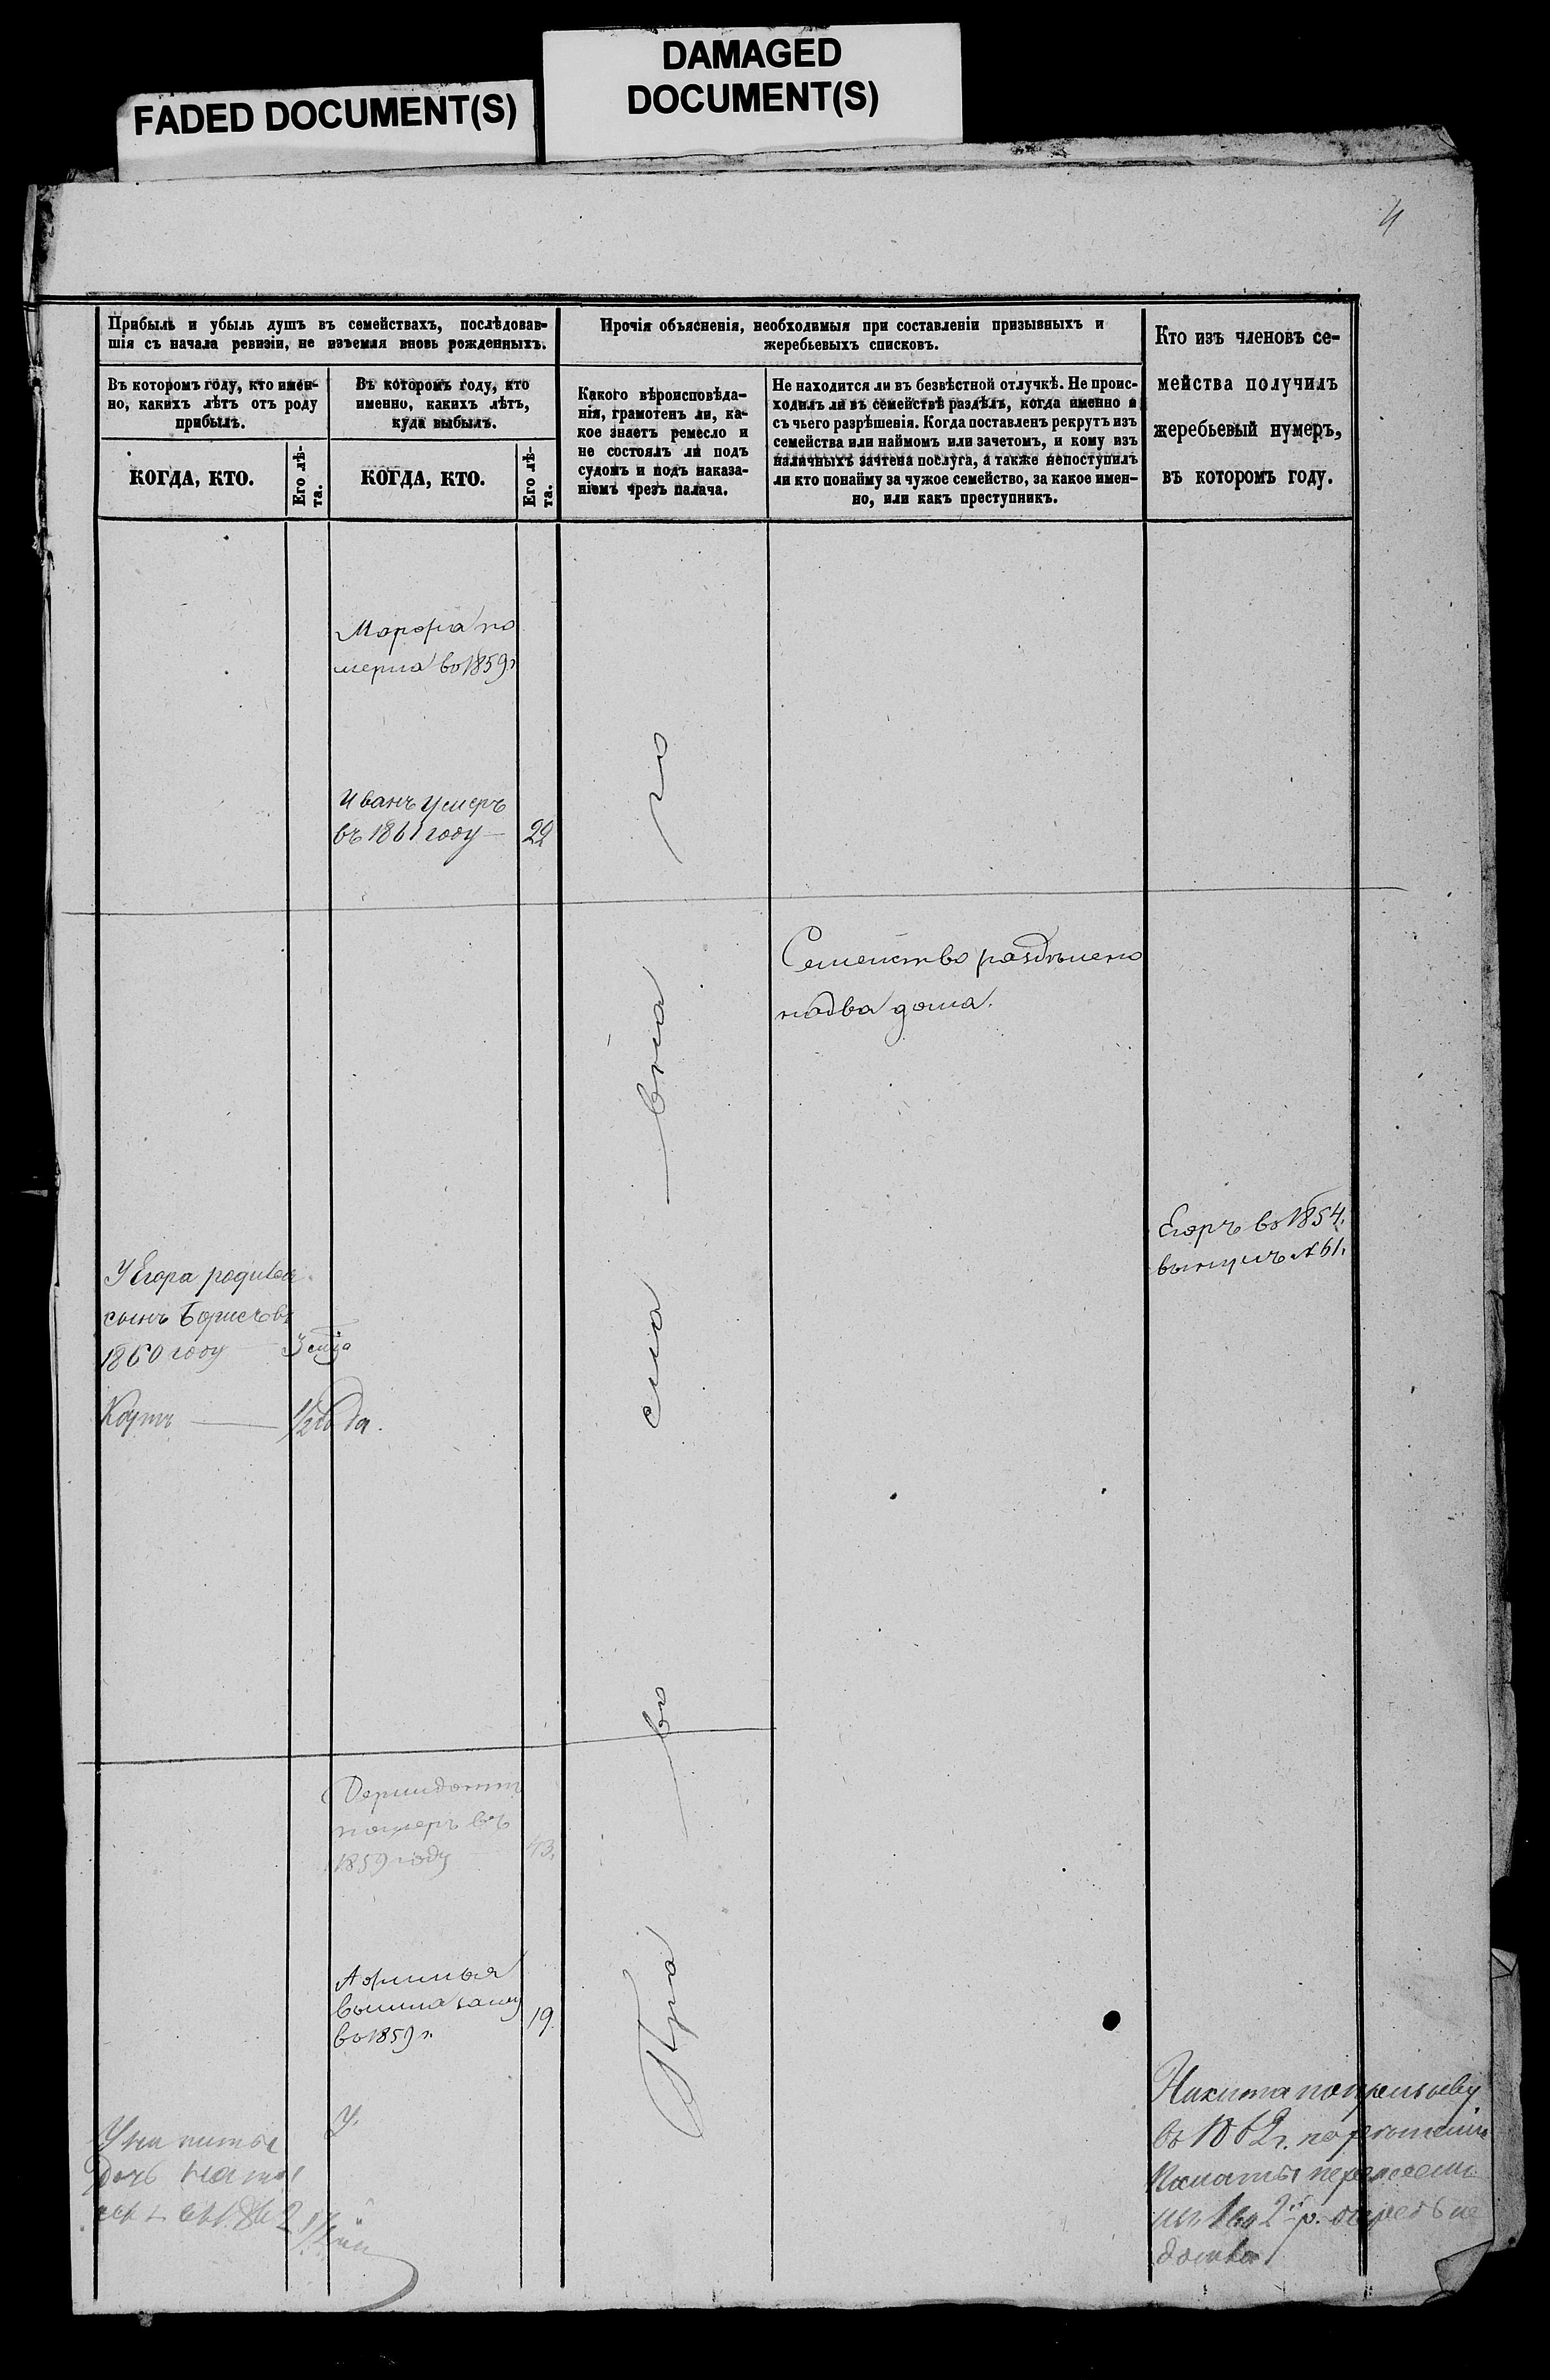 FADED DOCUMENT(S)
DAMAGED
DOCUMENT(S)
4
Прибыль и убыль душъ въ семействахъ, послѣдовав-
шія съ начала ревизіи, не изъемля вновь рожденныхъ.
Въ которомъ году, кто имен-
но, какихъ лѣтъ отъ роду
прибылъ.
КОГДА, КТО.
Его лѣ-
та.
Въ которомъ году, кто
именно, какихъ лѣтъ,
куда выбылъ.
КОГДА, КТО.
Его лѣ-
та.
Прочія объясненія, необходимыя при составленіи призывныхъ и
жеребьевыхъ списковъ.
Какого вѣроисповѣда-
нія, грамотенъ ли, ка-
кое знаетъ ремесло и
не состоялъ ли подъ
судомъ и подъ наказа-
ніемъ чрезъ палача.
Не находится ли въ безвѣстной отлучкѣ. Не проис-
ходилъ ли въ семействѣ раздѣлъ, когда именно и
съ чьего разрѣшенія. Когда поставленъ рекрутъ изъ
семейства или наймомъ или зачетомъ, и кому изъ
наличныхъ зачтена послуга, а также непоступилъ
ли кто понайму за чужое семейство, за какое имен-
но, или какъ преступникъ.
Кто изъ членовъ се-
мейства получилъ
жеребьевый нумеръ,
въ которомъ году.
Марфа по
мерла во 1859 г
Иванъ умеръ
въ 1861 году 22
Семейство раздѣлено
на два дома.
Егоръ во 1854.
вынулъ № 61.
У Егора родился
сынъ Борисъ въ
1860 году 3 мца
1/2 года.
померъ въ
1859 году 43.
вышла замуж
во 1859 г. 19.
Пра во сла вна го
У.
У Никиты
дочь
Никита
во 1862 г. по рѣшенію
Палаты